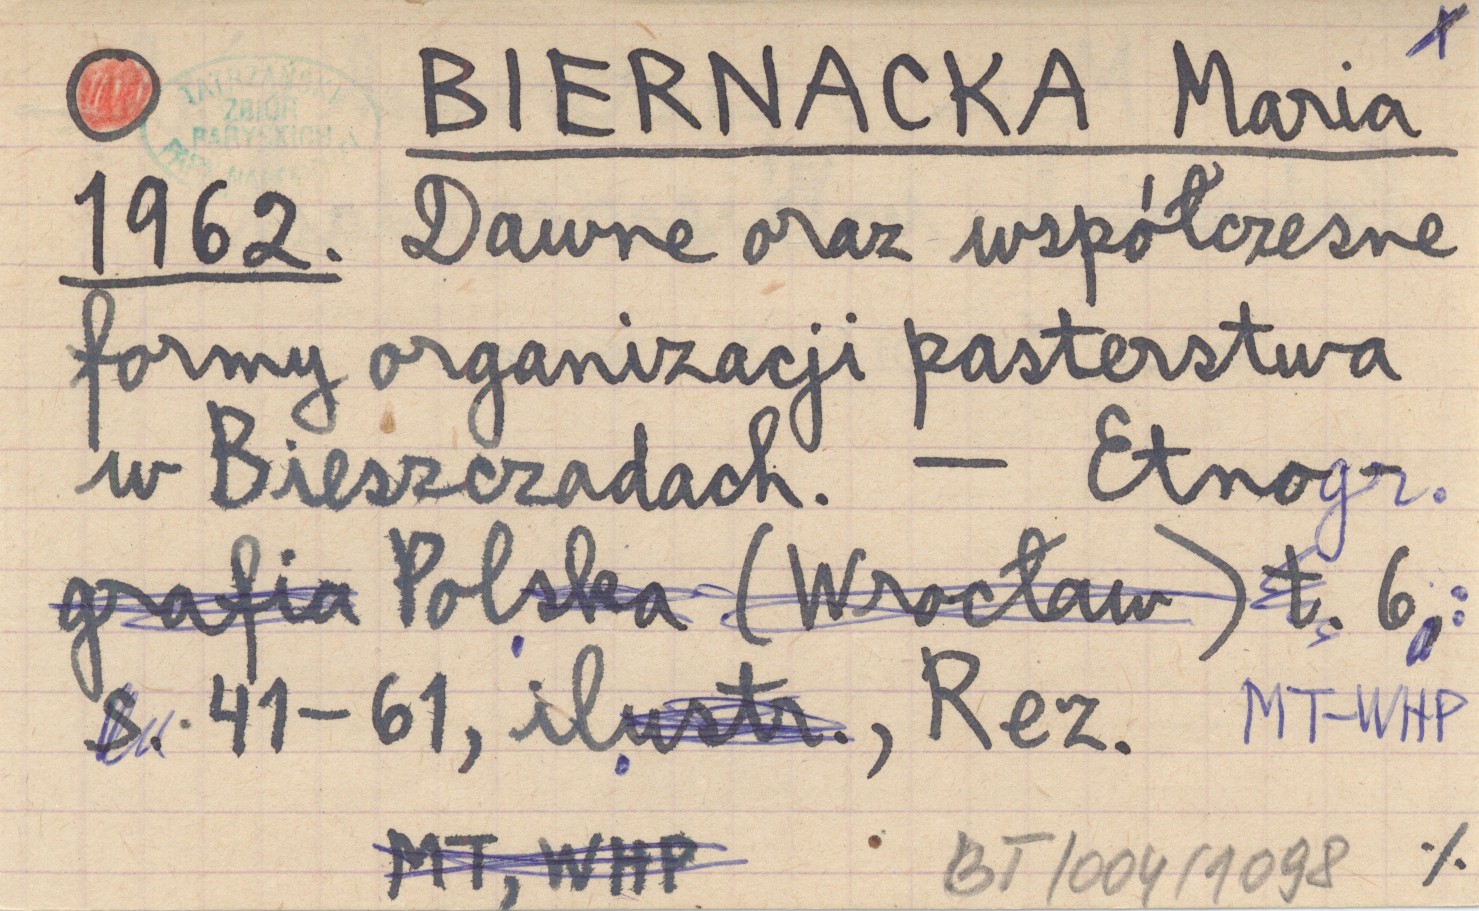 x
TATRZAŃSKI
ZBIÓR
PARYSKICH
BIERNACKA Maria
1962. Dawne oraz współczesne
formy organizacji pasterstwa
w Bieszczadach. — Etnogr.
grafia Polska (Wrocław) t. 6,:
s. 41–61, ilustr., Rez. MT-WHP
MT, WHP BT/004/1098 ٪